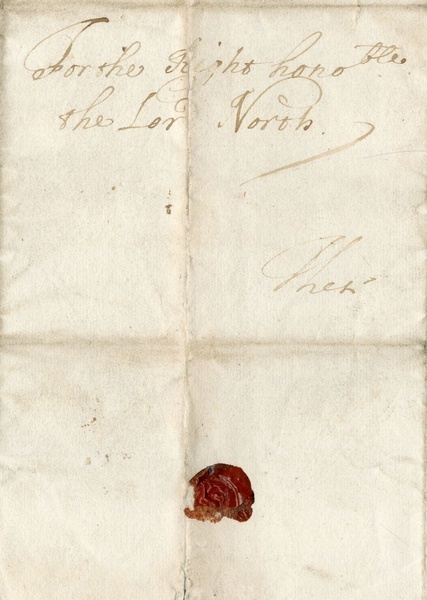 For the Right hono ble
the Lord North.
These